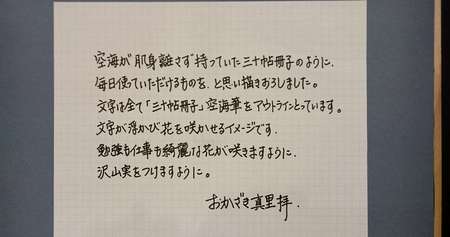 空海が肌身離さず持っていた三十帖冊子のように、
毎日使っていただけるものを、と思い描きおろしました。
文字は全て「三十帖冊子」空海筆をアウトラインとっています。
文字が浮かび花を咲かせるイメージです。
勉強も仕事も綺麗な花が咲きますように、
沢山実をつけますように。
おかざき真里拝.